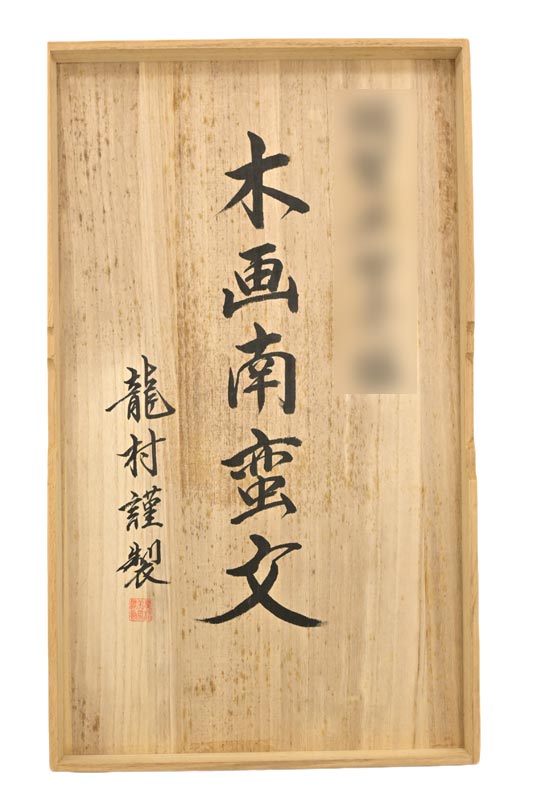 木画南蛮文
龍村謹製